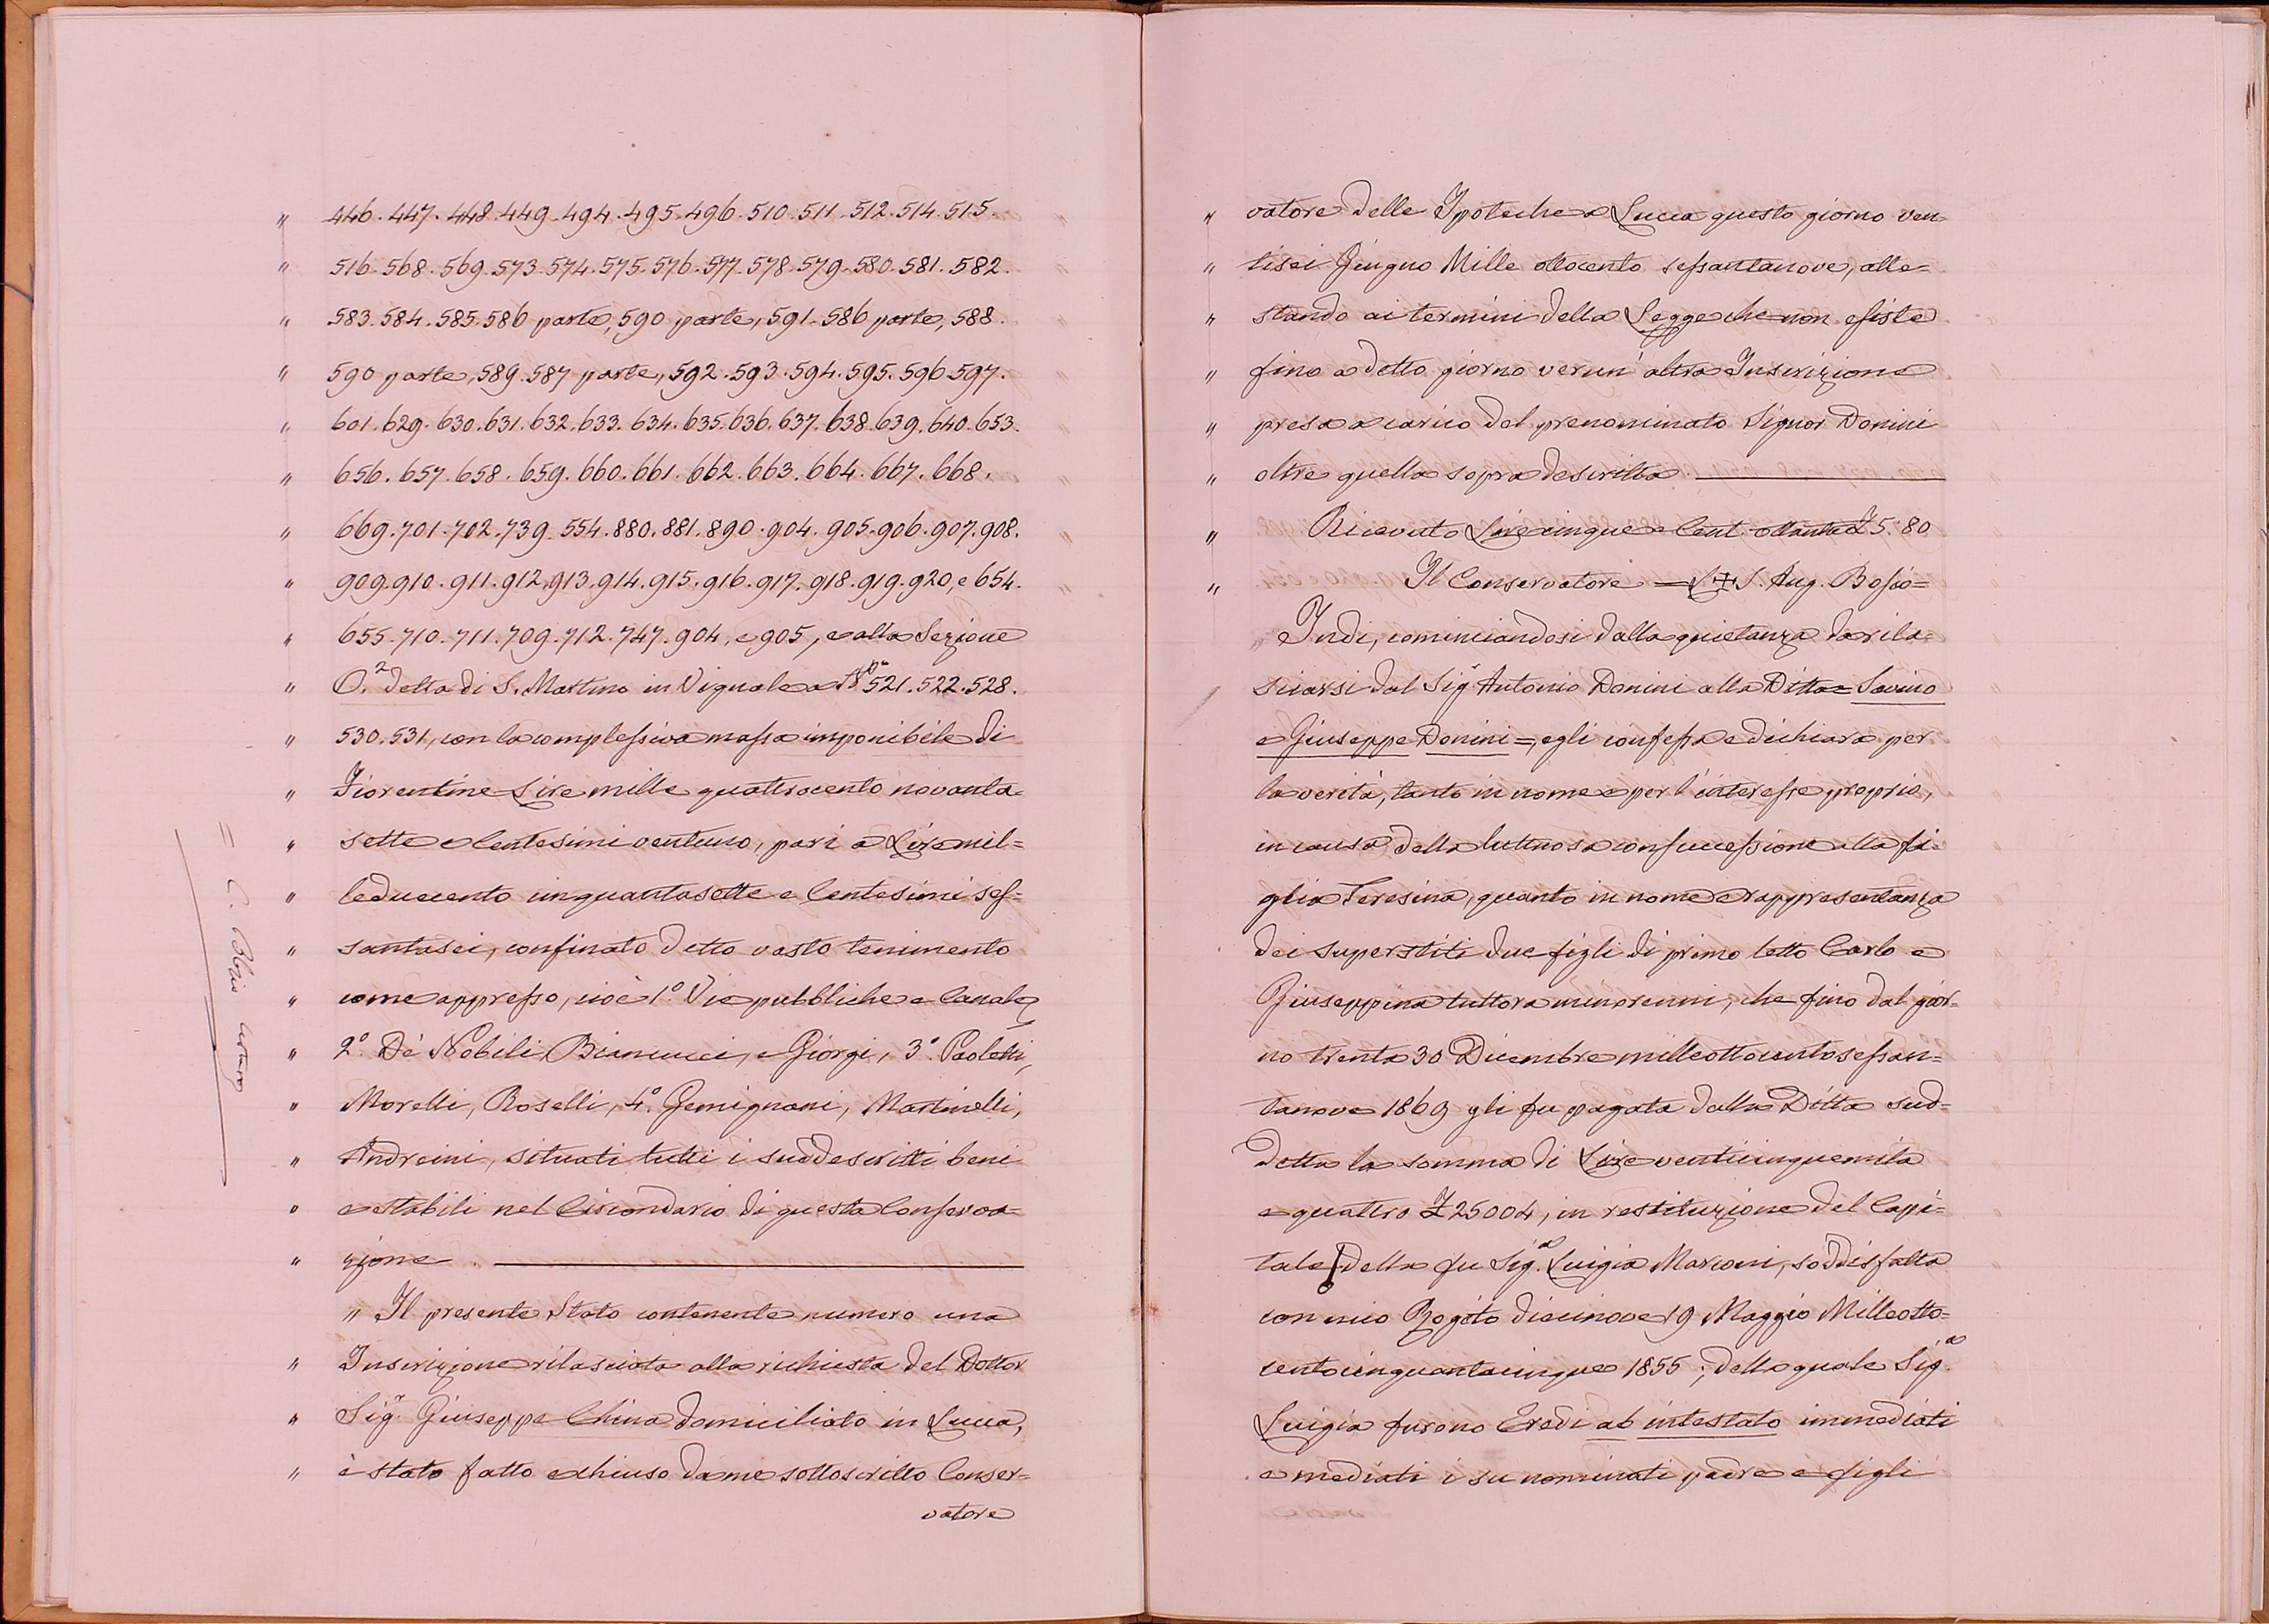 " 446. 447. 448. 449. 494. 495. 496. 510. 511. 512. 514. 515.
" 516. 568. 569. 573. 574. 575. 576. 577. 578. 579. 580. 581. 582.
" 583. 584. 585. 586 parte, 590 parte, 591. 586 parte, 588.
" 590 parte, 589. 587 parte, 592. 593. 594. 595. 596. 597.
" 601. 629. 630. 631. 632. 633. 634. 635. 636. 637. 638. 639. 640. 653.
" 656. 657. 658. 659. 660. 661. 662. 663. 664. 667. 668.
" 669. 701. 702. 739. 554. 880. 881. 890. 904. 905. 906. 907. 908.
" 909. 910. 911. 912. 913. 914. 915. 916. 917. 918. 919. 920, e 654.
" 655. 710. 711. 709. 712. 747. 904, e 905, e alla Sezione
" O.2 detta di S. Martino in Vignale a N.ri 521. 522. 528.
" 530. 531, con la complessiva massa imponibile di
" Fiorentine Lire mille quattrocento novanta-
" sette e Centesimi ventuno, pari a Lire mil=
" leduecento cinquantasette e Centesimi ses=
" santasei, confinato detto vasto tenimento
" come appresso, cioè 1º. Vie pubbliche e Canale,
" 2º. De' Nobili, Biancucci, e Giorgi, 3º. Paoletti,
" Morelli, Roselli, 4º. Gemignani, Martinelli,
" Andreini, situati tutti i suddescritti beni
" e stabili nel Circondario di questa Conserva=
" zione.
" Il presente Stato contenente numero una
" Inscrizione rilasciata alla richiesta del Dottor
" Sigr. Giuseppe China domiciliato in Lucca,
" è stato fatto e chiuso da me sottoscritto Conser=
vatore
= C.
" vatore delle Ipoteche a Lucca questo giorno ven-
" tisei Giugno Mille ottocento sessantanove, atte=
" stando ai termini della Legge che non esiste
" fino a detto giorno verun' altra Inscrizione
" presa a carico del prenominato Signor Donini
" oltre quella sopra descritta.
" Ricevuto Lire cinque e Cent. ottanta £ 5. 80
" Il Conservatore = L + S. Aug. Bosio =
" Indi, cominciandosi dalla quietanza da rila-
sciarsi dal Sigr. Antonio Donini alla Ditta = Savino
e Giuseppe Donini =, egli confessa e dichiara per
la verità, tanto in nome e per l'interesse proprio,
in causa della luttuosa consuccessione alla fi-
glia Teresina, quanto in nome e rappresentanza
dei superstiti due figli di primo letto Carlo e
Giuseppina tuttora minorenni, che fino dal gior=
no trenta 30 Dicembre milleottocentosessan=
tanove 1869 gli fu pagata dalla Ditta sud=
detta la somma di Lire venticinquemila
e quattro £ 25004, in restituzione del Capi=
tale della fu Sig.a Luigia Marconi, soddisfatta
con mio Rogito diecinove 19 Maggio Milleotto=
centocinquantacinque 1855; della quale Sig.a
Luigia furono Eredi ab intestato immediati
e mediati i su nominati padre e figli